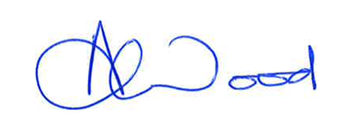 A Wood